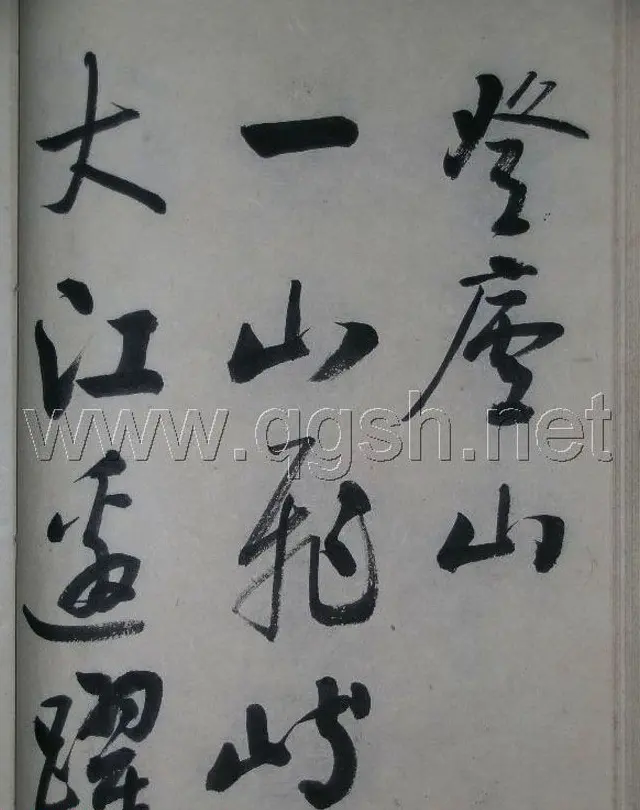 登廬山
一山飛峙
大江邊躍
www.qgsh.net